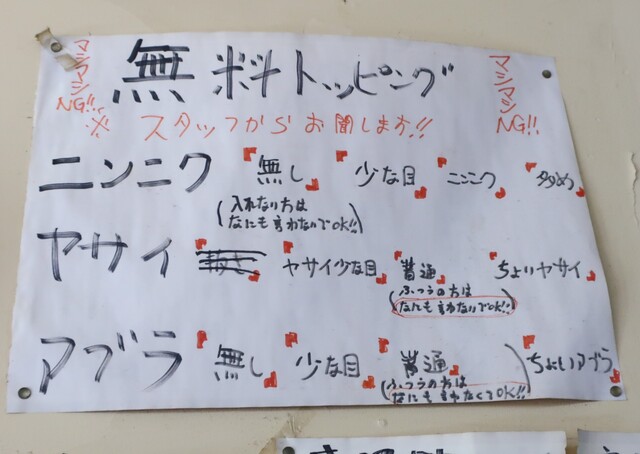 マシマシNG!!
無料トッピング
マシマシNG!!
※スタッフからお聞します!!
ニンニク 「無し」 「少な目」 「ニンニク」 「多め」
(入れない方は
なにも言わないでOK!!)
ヤサイ 「ヤサイ少な目」 「普通」 「ちょいヤサイ」
(ふつうの方は
なにも言わないでOK!!)
アブラ 「無し」 「少な目」 「普通」 「ちょいアブラ」
(ふつうの方は
なにも言わなくてOK!!)